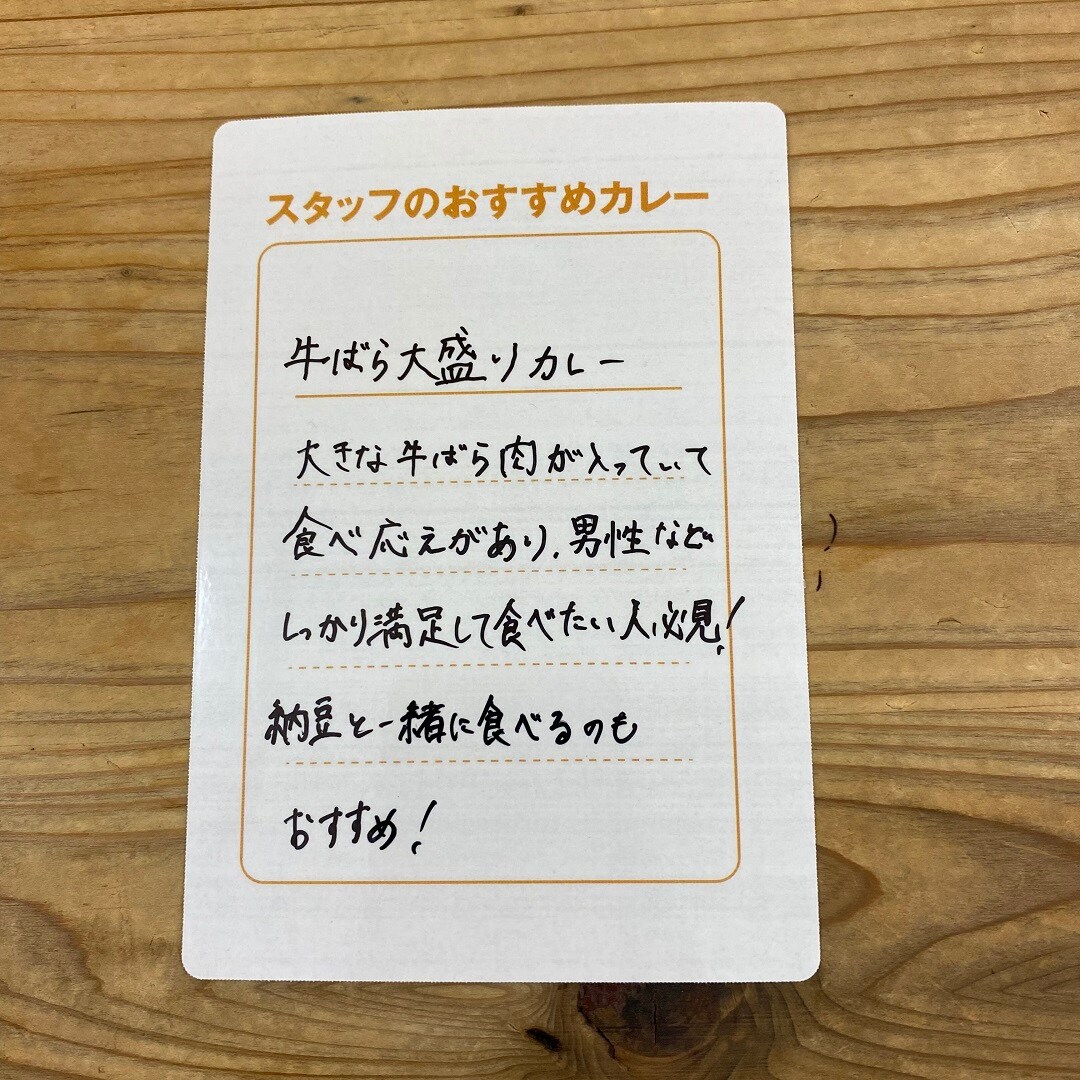 スタッフのおすすめカレー
牛ばら大盛りカレー
大きな牛ばら肉が入っていて
食べ応えがあり、男性など
しっかり満足して食べたい人必見!
納豆と一緒に食べるのも
おすすめ!